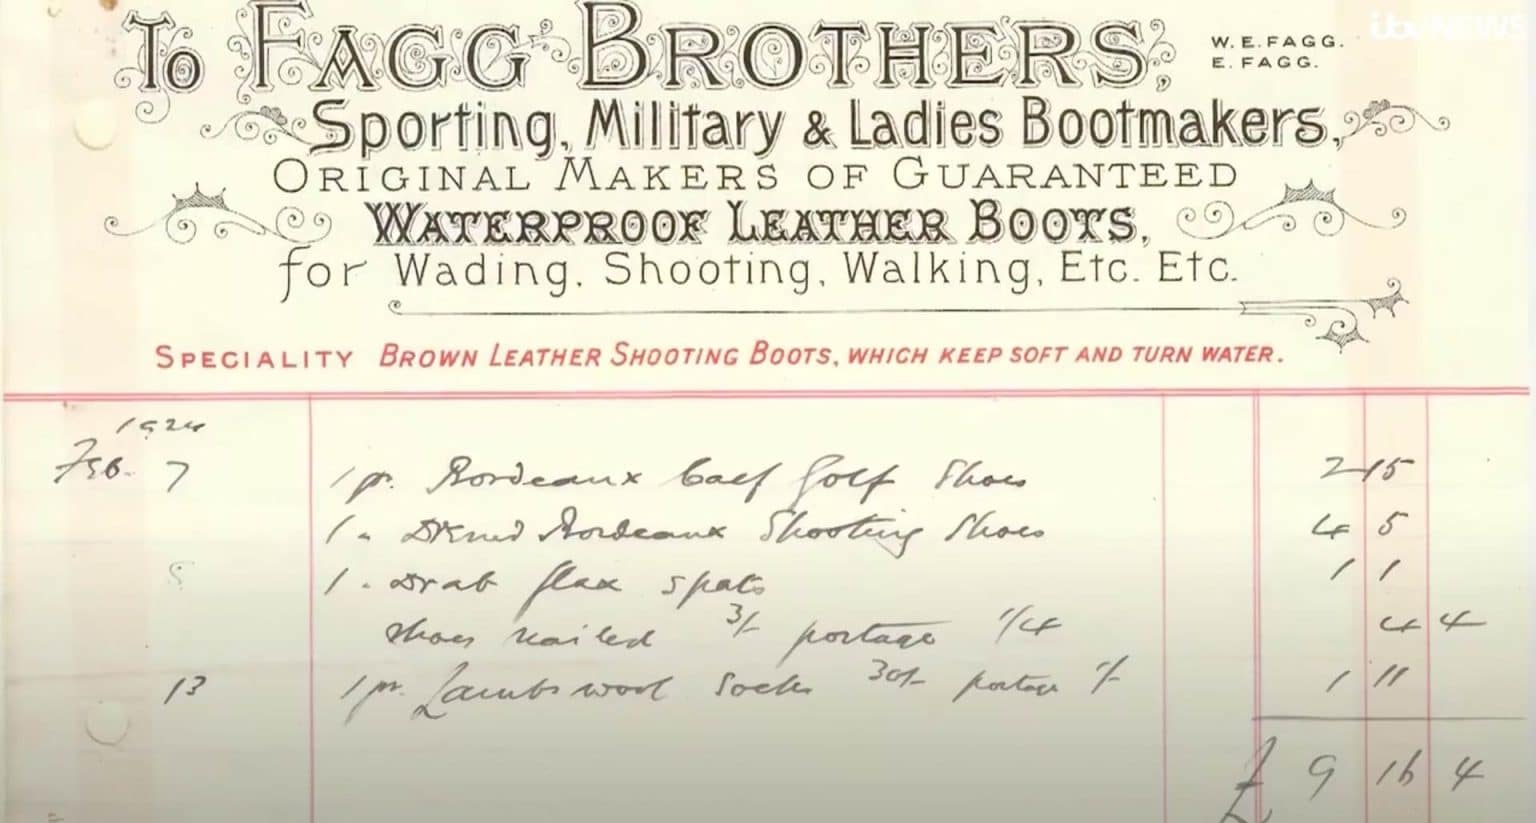 itv NEWS
To FAGG BROTHERS,
W. E. FAGG.
E. FAGG.
Sporting, Military & Ladies Bootmakers,
ORIGINAL MAKERS OF GUARANTEED
WATERPROOF LEATHER BOOTS,
for Wading, Shooting, Walking, Etc. Etc.
SPECIALITY BROWN LEATHER SHOOTING BOOTS, WHICH KEEP SOFT AND TURN WATER.
1924
Feb. 7 1 pr. Bordeaux Calf Golf Shoes 2 15
1 " Bordeaux Shooting Shoes 4 5
8 1 " Drab flax spats 1 1
Shoes nailed 3/- portage 1/4 4 4
13 1 pr. Lambswool Socks 30/- portage 1/- 1 11
£ 9 16 4